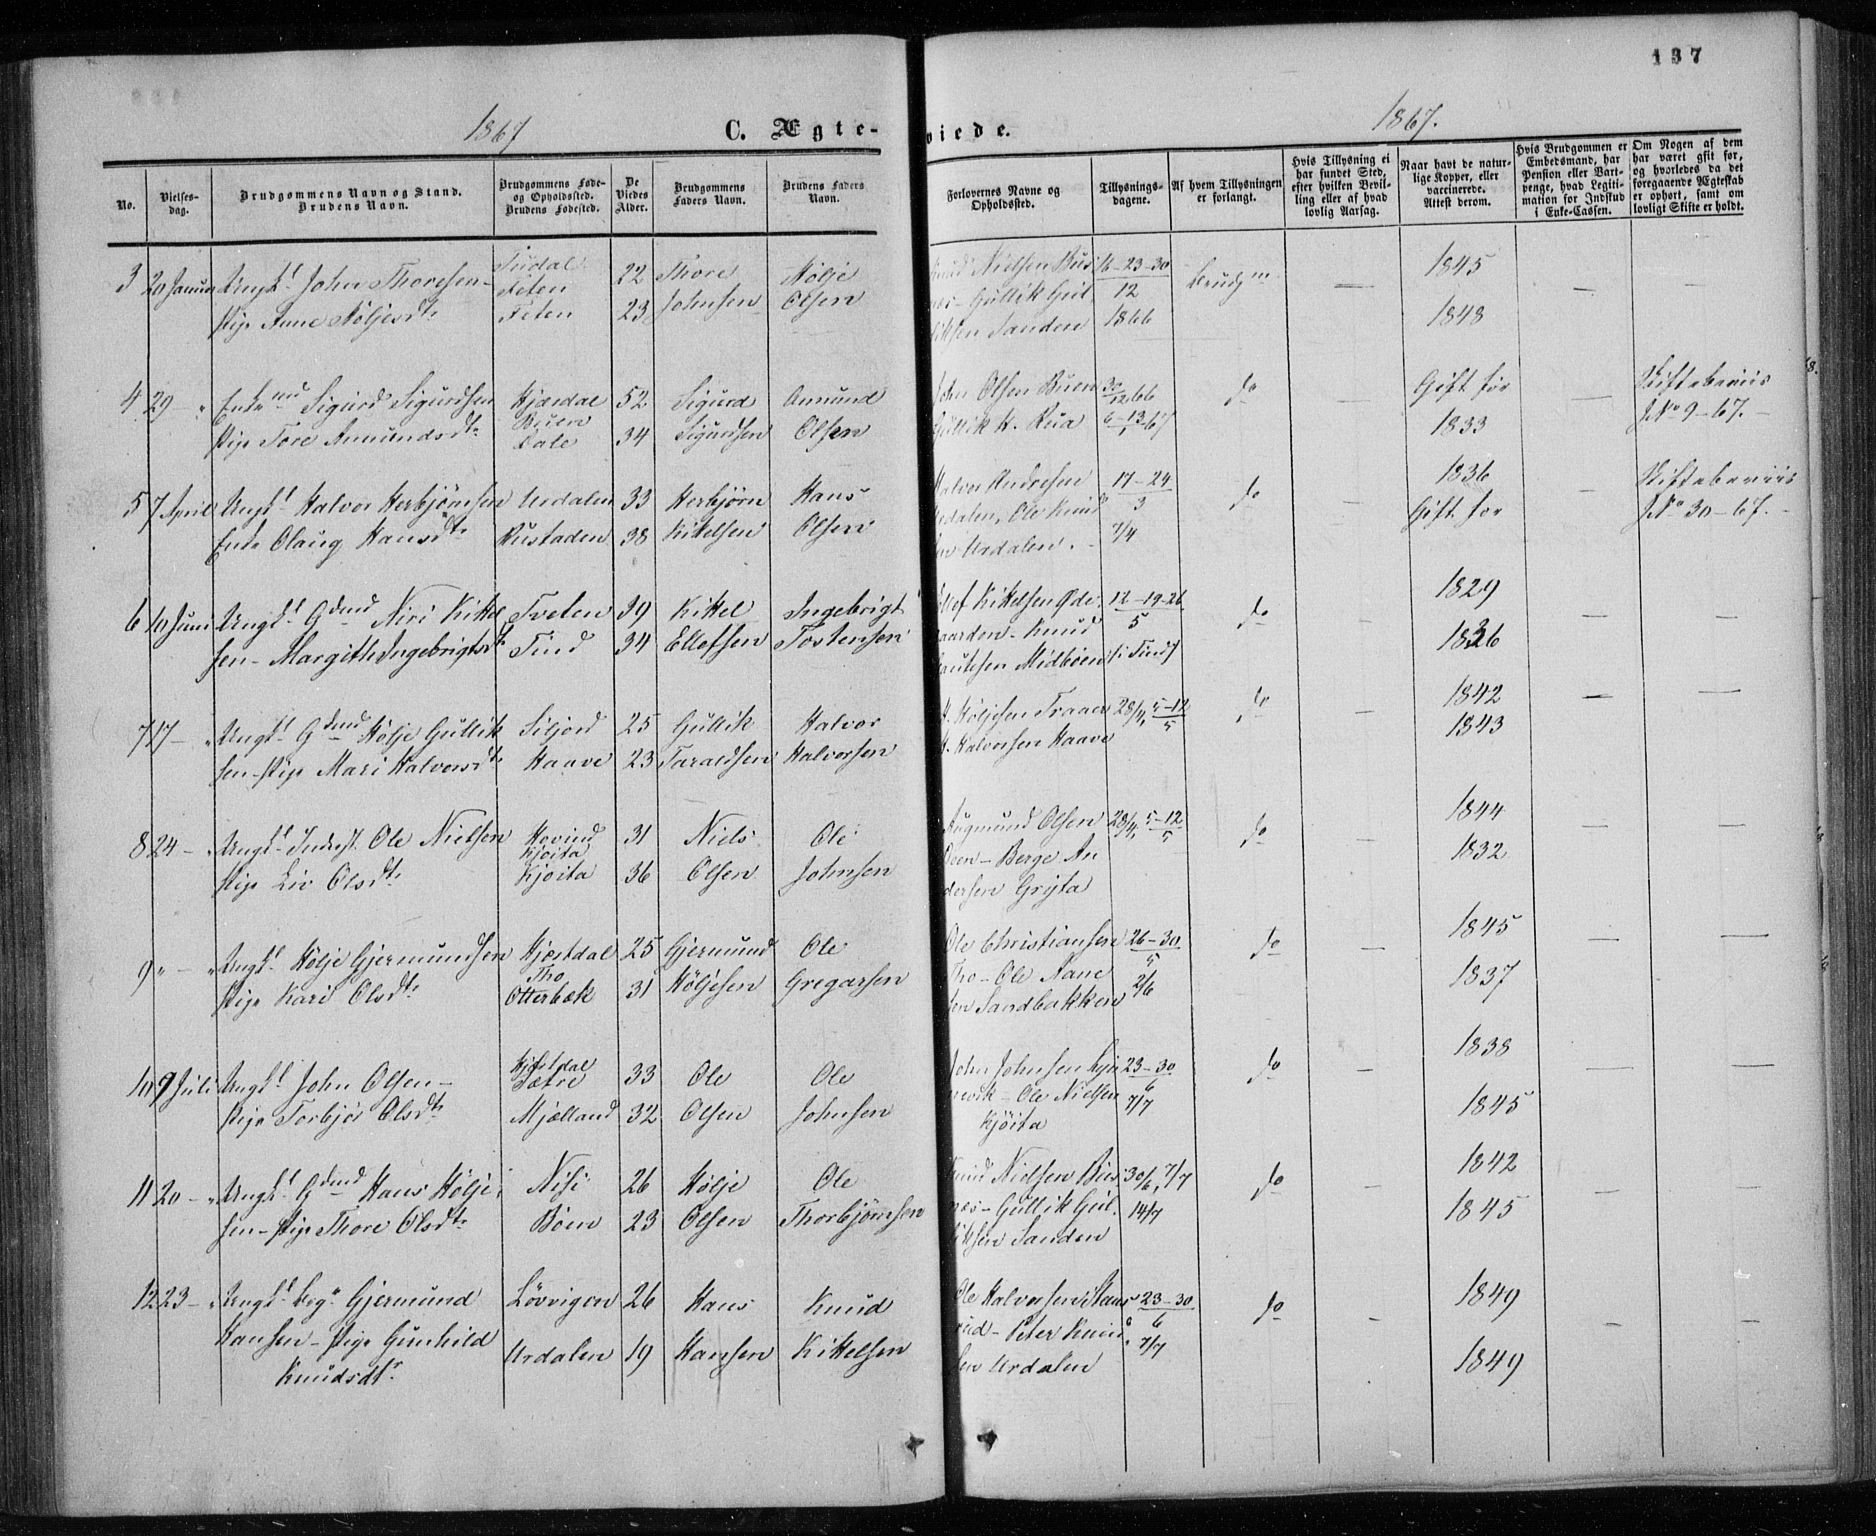 137
1867
C. Ægte-
viede.
1867.
No.
Vielses-
dag.
Brudgommens Navn og Stand.
Brudens Navn.
Brudgommens Føde-
og Opholdssted.
Brudens Fødested.
De
Viedes
Alder.
Brudgommens
Faders Navn.
Brudens Faders
Navn.
Forlovernes Navne og
Opholdssted.
Tillysnings-
dagene.
Af hvem Tillysningen
er forlangt.
Hvis Tillysning ei
har fundet Sted,
efter hvilken Bevil-
ling eller af hvad
lovlig Aarsag.
Naar havt de natur-
lige Kopper, eller
vaccinerede.
Attest derom.
Hvis Brudgommen er
Embedsmand, har
Pension eller Vart-
penge, hvad Legiti-
mation for Indskud
i Enke-Cassen.
Om Nogen af dem
har været gift før,
og hvorledes da det
foregaaende Ægteskab
er ophørt, samt om
lovligt Skifte er holdt.
3 20 Januar Ungk. John Thoresen Tudal 22 Thore Hølje Nielsen Bus 16-23-30 Brudgm — 1845 — —
Pige Anne Høljesdtr Feten 23 Johnsen Olsen Gullik Gul 12 1848
Feten Sanden 1866
4 29 — " Enkemd Sigurd Sigurdsen Hjærdal 52 Sigurd Amund John Olsen Buen 30/12 66 do — Gift før — Skiftebeviis
Pige Tore Amundsdtr Buen Dale 34 Sigurdsen Olsen Gullik K. Rua 6-13/1 67 1833 No 9-67.
5 7 April Ungk. Halvor Herbjørnsen Urdalen 33 Herbjørn Hans Halvor Andresen 17-24 do — 1836 — Skiftebeviis
Enke Olaug Hansdtr Rustaden 38 Kittelsen Olsen Urdalen, Ole Knud 3 Gift før No 30-67.
sen Urdalen. 7/4
6 10 Juni Ungk. Gdmd Niri Kittel Tveten 39 Kittel Ingebrigt Kittelsen Øde 12-19-26 do — 1829 — —
sen - Margith Ingebrigtsdtr Tind 34 Ellefsen Tostensen gaarden - Knud 5 1836
Midbøen (i Tind)
7 17 — " Ungk. Gdmd Hølje Gullik Siljord 25 Gullik Halvor H. Høljesen Traaen 28/4, 5-12/5 do — 1842 — —
sen - Pige Mari Halvorsdtr Haave 23 Taraldsen Halvorsen H. Halvorsen Haave 1843
8 24 — " Ungk. Inderst. Ole Nielsen Hovind 31 Niels Ole Augmund Olsen 28/4, 5-12/5 do — 1844 — —
Kjøita
Pige Liv Olsdtr Kjøita 36 Olsen Johnsen Berge An 1832
dersen Grijta
9 " — " Ungk. Hølje Gjermundsen Hjertdal 25 Gjermund Ole Ole Christiansen 26-30/5 do — 1845 — —
Tho
Pige Kari Olsdtr Otterbæk 31 Høljesen Gregarsen Tho - Ole Aane 2/6 1837
sen Sandbakken
10 9 Juli Ungk. John Olsen Hjertdal 33 Ole Ole John Johnsen 23-30 do — 1838 — —
Sætre
Pige Torbjør Olsdtr Mjælland 32 Olsen Johnsen Ole Nielsen 6 1845
Kjöita 7/7
11 20 — " Ungk. Gdmd Hans Hølje Nisi 26 Hølje Ole Knud Nielsen Bus 30/6, 7/7 do — 1842 — —
sen - Pige Thore Olsdtr Böen 23 Olsen Thorbjørnsen næs - Gullik Gul 14/7 1845
liksen Sanden
12 23 — " Ungk. Gjermund Lövvigen 26 Hans Knud Ole Halvorsen 23-30 do — 1849 — —
Hansen - Pige Gunhild Urdalen 19 Hansen Kittelsen rud - Peter Knud 6 1849
Knudsdtr sen Urdalen 7/7